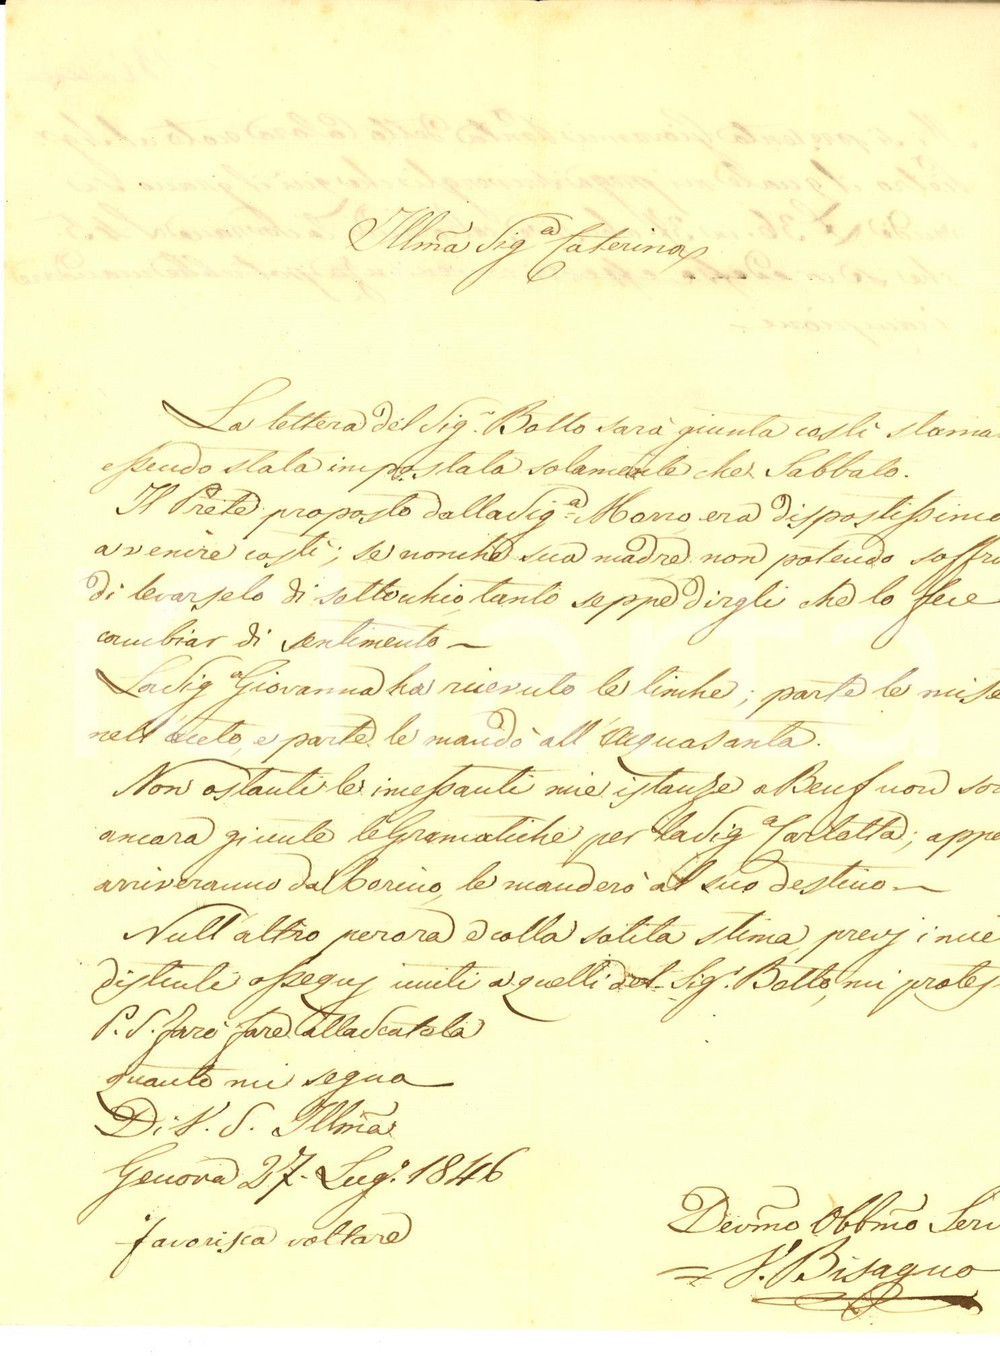 Illma Sig.a Caterina
La lettera del Sig.r Botto sarà giunta costì stama
essendo stata impostata solamente che Sabbato.
Il Prete proposto dalla Sig.a Morro era dispostissimo
a venire costì; se nonche sua madre non potendo soffri
di levarselo di sottochio, tanto seppe dirgli che lo fece
cambiar di sentimento —
La Sig.a Giovanna ha ricevuto le tinche; parte le mise
nell'aceto, e parte le mandò all'Acquasanta.
Non ostanti le incessanti mie istanze a Beuf non son
ancora giunte le Gramatiche per la Sig.a Carlotta; appe
arriveranno da Torino, le manderò al suo destino —
Null'altro per ora e colla solita stima, previ i miei
distinti ossequj uniti a quelli del Sig.r Botto, mi protes
P.S. farò fare alla Scatola
quanto mi segna
Di V. S. Illma
Genova 27 Lug.o 1846
favorisca voltare
Devmo Obbmo Serv
V. Bisagno